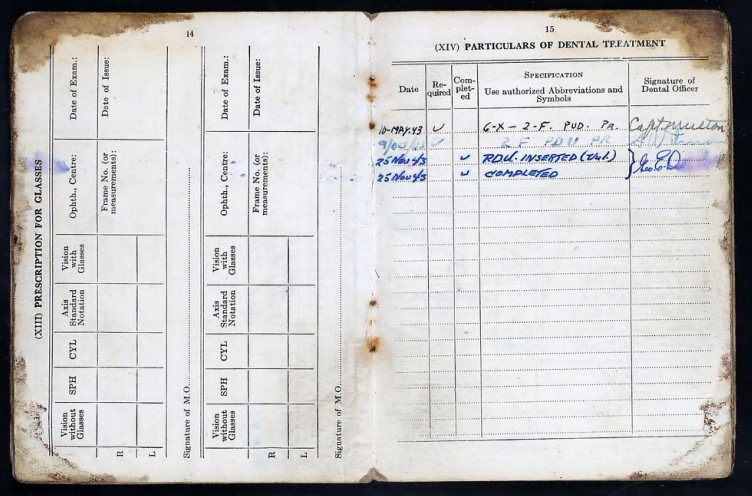 14
(XIII) PRESCRIPTION FOR GLASSES
Date of Exam.:
Date of Issue:
Ophth., Centre:
Frame No. (or measurements):
Vision with Glasses
Axis Standard Notation
CYL
SPH
Vision without Glasses
R
L
Signature of M.O.
Date of Exam.:
Date of Issue:
Ophth., Centre:
Frame No. (or measurements):
Vision with Glasses
Axis Standard Notation
CYL
SPH
Vision without Glasses
R
L
Signature of M.O.
15
(XIV) PARTICULARS OF DENTAL TREATMENT
Date
Re-quired
Com-plet-ed
SPECIFICATION
Use authorized Abbreviations and Symbols
Signature of Dental Officer
10-MAY.43 6-X-2-F. PUD. PR. Capt
2 F PDU PR
25 Nov 43 INSERTED
25 Nov 43 COMPLETED